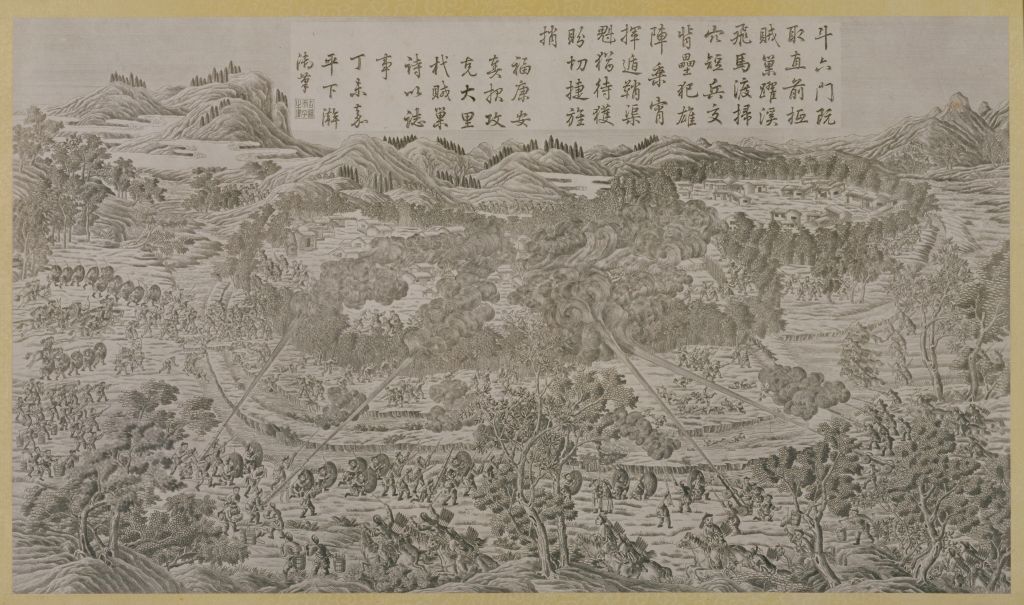 斗六門既
取直前抵
賊巢躍溪
飛馬渡掃
穴短兵交
背壘犯雄
陣乘宵
揮遁鞘渠
魁猶待獲
盼切捷旌
捎
福康安
奏報攻
克大里
杙賊巢
詩以誌
事
丁未嘉
平下澣
御筆